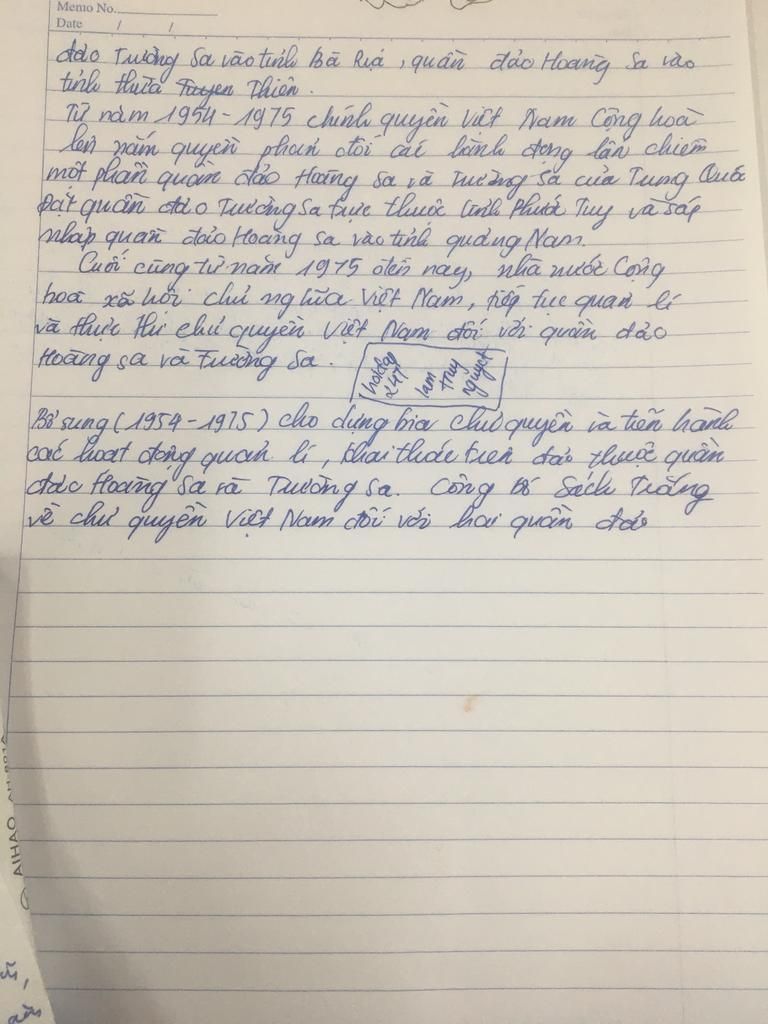 Memo No.
Date / /
đảo Trường Sa vào tỉnh Bà Rịa, quần đảo Hoàng Sa vào
tỉnh thừa Thiên.
Từ năm 1954-1975 chính quyền Việt Nam Cộng hoà
lên nắm quyền phản đối các hành động lấn chiếm
một phần quần đảo Hoàng Sa và Trường Sa của Trung Quốc
Đặt quần đảo Trường Sa trực thuộc tỉnh Phước Tuy và sáp
nhập quần đảo Hoàng Sa vào tỉnh quảng Nam.
Cuối cùng từ năm 1975 đến nay, nhà nước Cộng
hoà xã hội chủ nghĩa Việt Nam, tiếp tục quản lí
và thực thi chủ quyền Việt Nam đối với quần đảo
Hoàng Sa và Trường Sa.
hoidap
247
lam
truy
nguyet
Bổ sung (1954-1975) cho dựng bia chủ quyền và tiến hành
các hoạt động quản lí, khai thác trên đảo thuộc quần
đảo Hoàng Sa và Trường Sa. Công bố Sách Trắng
về chủ quyền Việt Nam đối với hai quần đảo
AIHAO